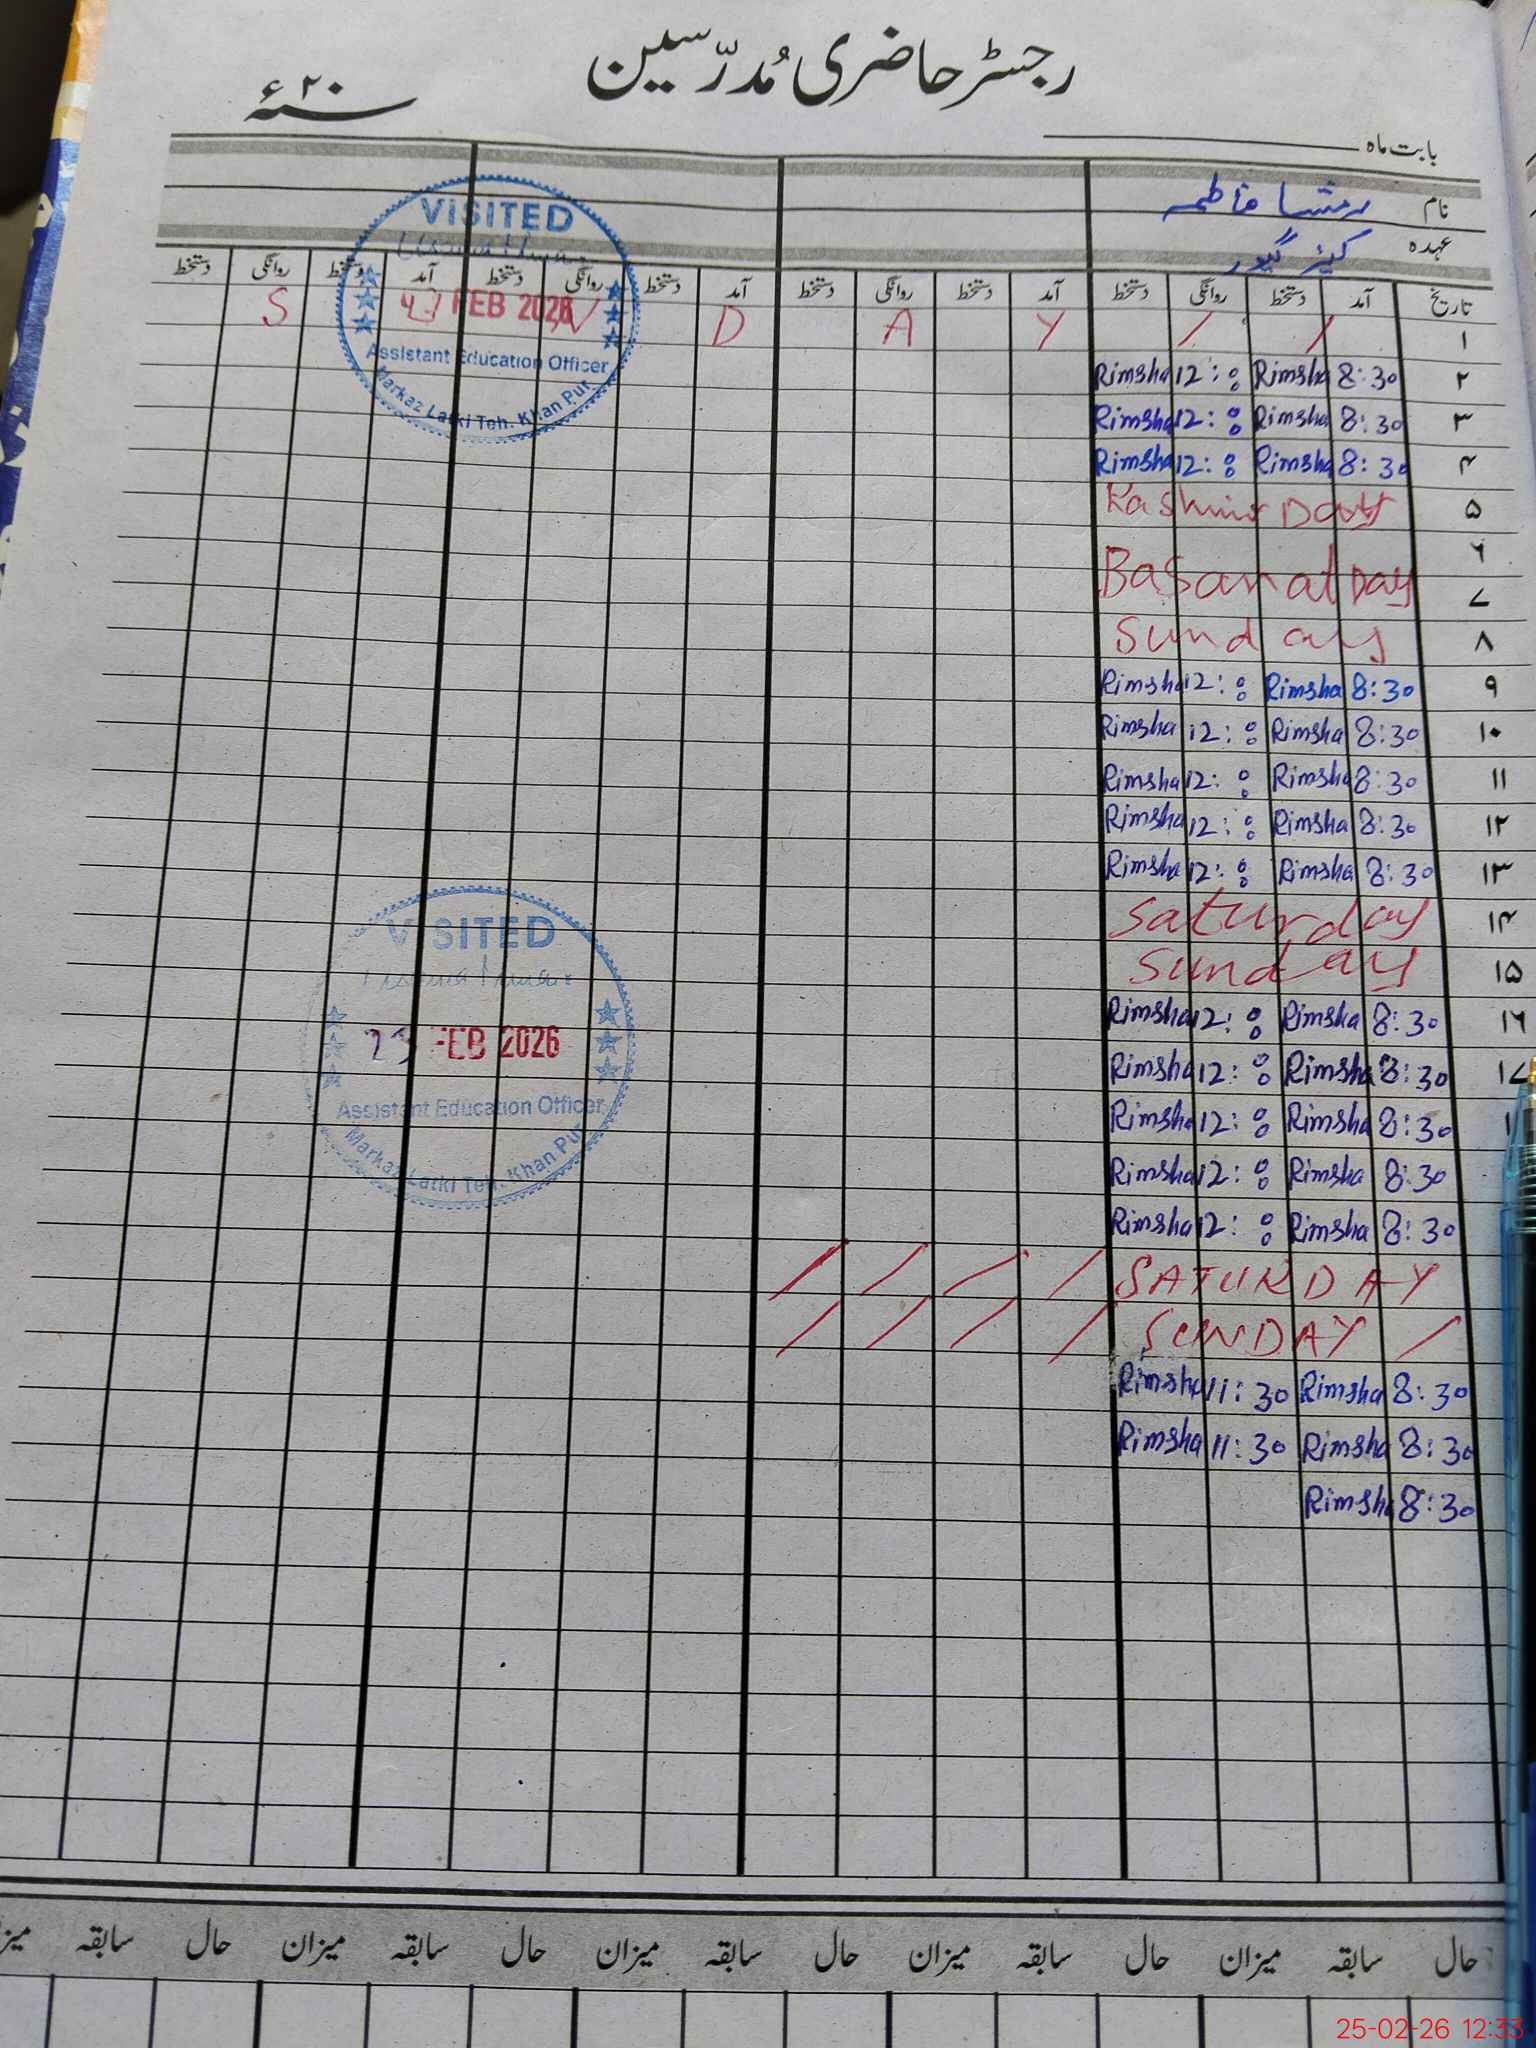 رجسٹر حاضری مُدرّسین
۲۰ ء
بابت ماہ
نام رمشا فاطمہ
عہدہ کیئر گیور
تاریخ آمد دستخط روانگی دستخط آمد دستخط روانگی دستخط آمد دستخط روانگی دستخط آمد دستخط روانگی دستخط
۱ S N D A Y / /
۲ Rimsha 12:00 Rimsha 8:30
۳ Rimsha 12:00 Rimsha 8:30
۴ Rimsha 12:00 Rimsha 8:30
۵ Kashmir Day
۶
۷ Basanat Day
۸ Sunday
۹ Rimsha 12:00 Rimsha 8:30
۱۰ Rimsha 12:00 Rimsha 8:30
۱۱ Rimsha 12:00 Rimsha 8:30
۱۲ Rimsha 12:00 Rimsha 8:30
۱۳ Rimsha 12:00 Rimsha 8:30
۱۴ Saturday
۱۵ Sunday
۱۶ Rimsha 12:00 Rimsha 8:30
۱۷ Rimsha 12:00 Rimsha 8:30
Rimsha 12:00 Rimsha 8:30
Rimsha 12:00 Rimsha 8:30
Rimsha 12:00 Rimsha 8:30
/ / / / SATURDAY
/ / / / SUNDAY /
Rimsha 11:30 Rimsha 8:30
Rimsha 11:30 Rimsha 8:30
Rimsha 8:30
VISITED
FEB 2026
Assistant Education Officer
Markaz Latki Teh. Khan Pur
VISITED
FEB 2026
Assistant Education Officer
Markaz Latki Teh. Khan Pur
حال سابقہ میزان حال سابقہ میزان حال سابقہ میزان حال سابقہ میزان حال سابقہ
25-02-26 12:33